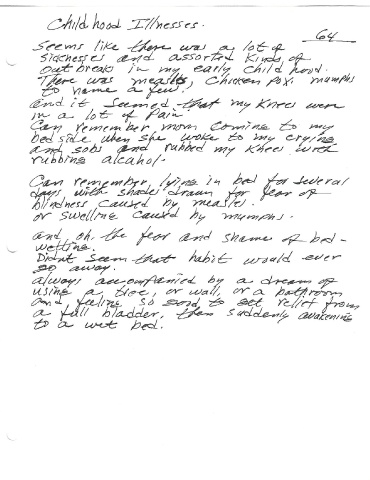 Childhood Illnesses.
64
Seems like there was a lot of
sicknesses and assorted kinds of
outbreaks in my early childhood.
There was measles, Chicken Pox, mumphs
to name a few,
and it seemed that my knees were
in a lot of pain
Can remember mom coming to my
bedside when she woke to my crying
and sobs and rubbed my knees with
rubbing alcohol.
Can remember lying in bed for several
days with shades drawn for fear of
blindness caused by measles.
or swelling caused by mumphs.
and, oh, the fear and shame of bed-
wetting.
Didnt seem that habit would ever
go away.
always accompanied by a dream of
using a tree, or wall, or a bathroom
and feeling so good to get relief from
a full bladder, then suddenly awakening
to a wet bed.